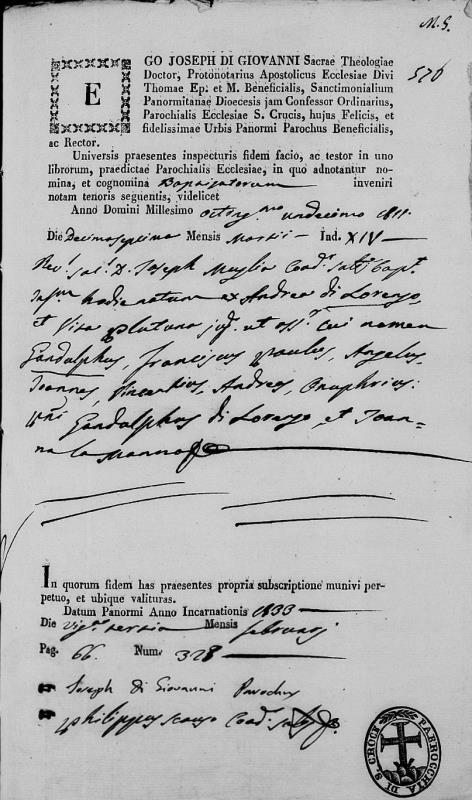 M. G.
576
EGO JOSEPH DI GIOVANNI Sacrae Theologiae
Doctor, Protonotarius Apostolicus Ecclesiae Divi
Thomae Ep: et M. Beneficialis, Sanctimonialium
Panormitanae Dioecesis jam Confessor Ordinarius,
Parochialis Ecclesiae S. Crucis, hujus Felicis, et
fidelissimae Urbis Panormi Parochus Beneficialis,
ac Rector.
Universis praesentes inspecturis fidem facio, ac testor in uno
librorum, praedictae Parochialis Ecclesiae, in quo adnotantur no-
mina, et cognomina Baptizatorum inveniri
notam tenoris seguentis, videlicet
Anno Domini Millesimo undecimo 1811.
Die Decimoseptimo Mensis Martii Ind. XIV
Joseph
hodie natum ex Andrea di Lorenzo,
et Vita cui nomen
Gandolphus, Franciscus Paulus, Angelus,
Joannes, Vincentius, Andreas, Onuphrius:
Gandolphus di Lorenzo, et Joan=
na la Manno
In quorum fidem has praesentes propria subscriptione munivi per-
petuo, et ubique valituras.
Datum Panormi Anno Incarnationis 1833
Die tertia Mensis februarj
Pag. 66. Num. 328
Joseph di Giovanni Parochus
Philippus
PARROCCHIA DI S. CROCE